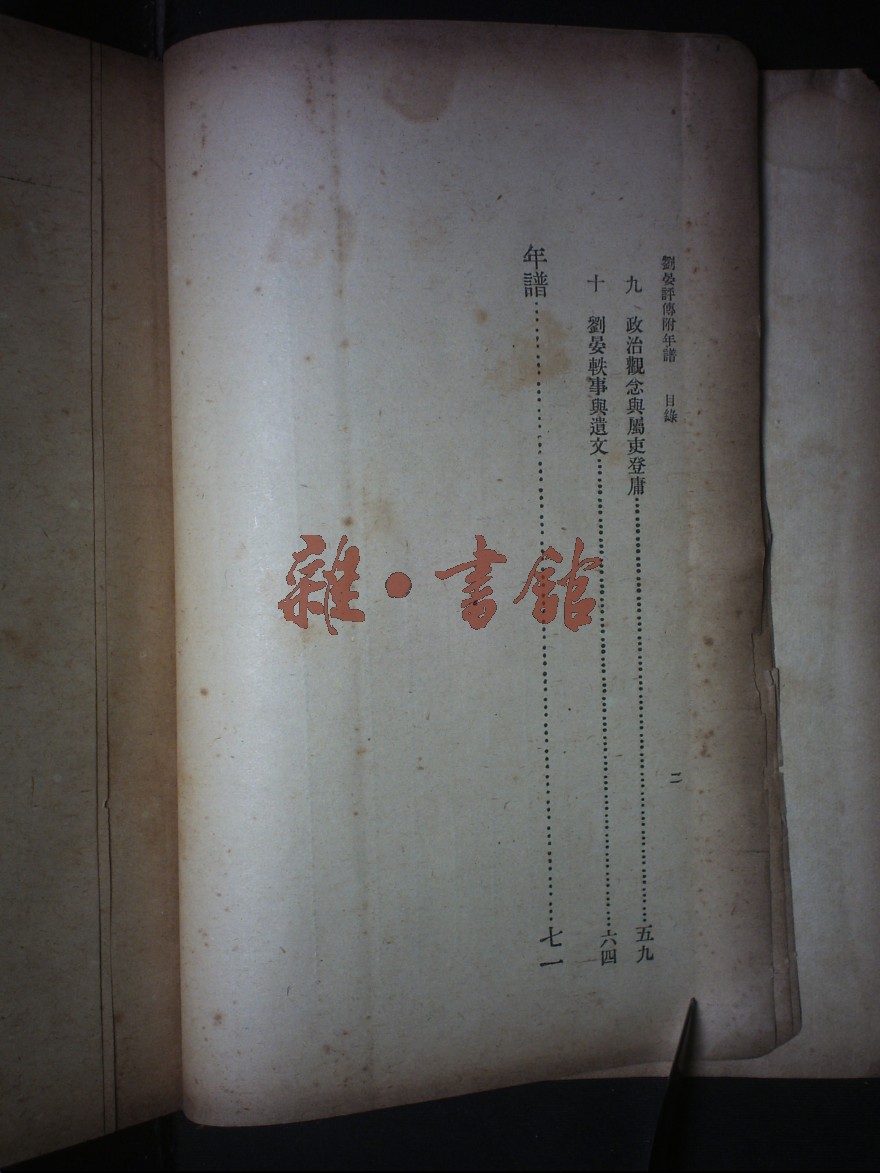 劉晏評傳附年譜 目錄 二
九 政治觀念與屬吏登庸…………五九
十 劉晏軼事與遺文…………六四
年譜…………七一
雜·書館